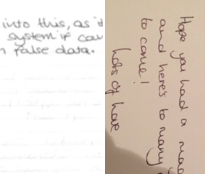 into this, as
system if cou
n false data.
Hope you had a
and here's to many
to come!
lots of love